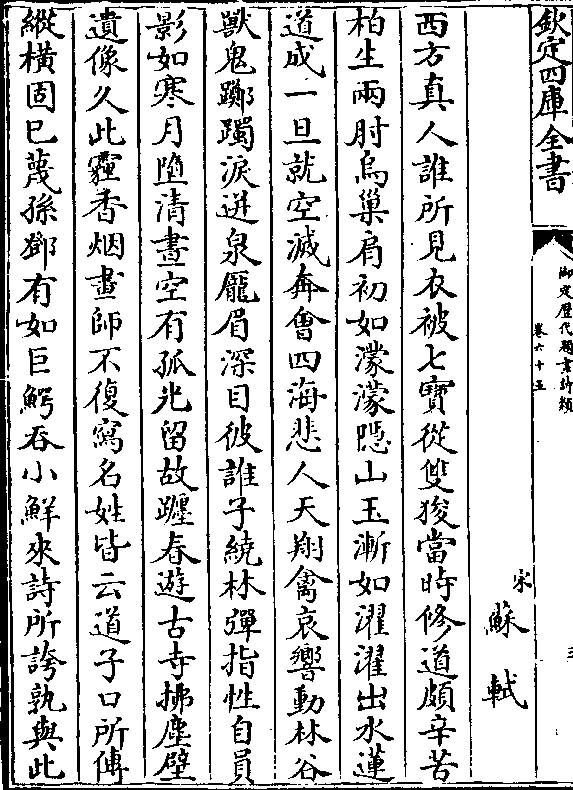 欽定四庫全書
御定歴代題畫詩類
卷六十五
三
宋
蘇軾
西方真人誰所見衣被七寳從雙狻當時修道頗辛苦
柏生兩肘烏巢肩初如濛濛隠山玉漸如濯濯出水蓮
道成一旦就空滅奔會四海悲人天翔禽哀響動林谷
獸鬼躑躅淚迸泉龎眉深目彼誰子繞林彈指性自員
影如寒月墮清晝空有孤光留故躔春遊古寺拂塵壁
遺像久此霾香烟畫師不復寫名姓皆云道子口所傳
縱横固已蔑孫鄧有如巨鰐吞小鮮來詩所誇孰與此